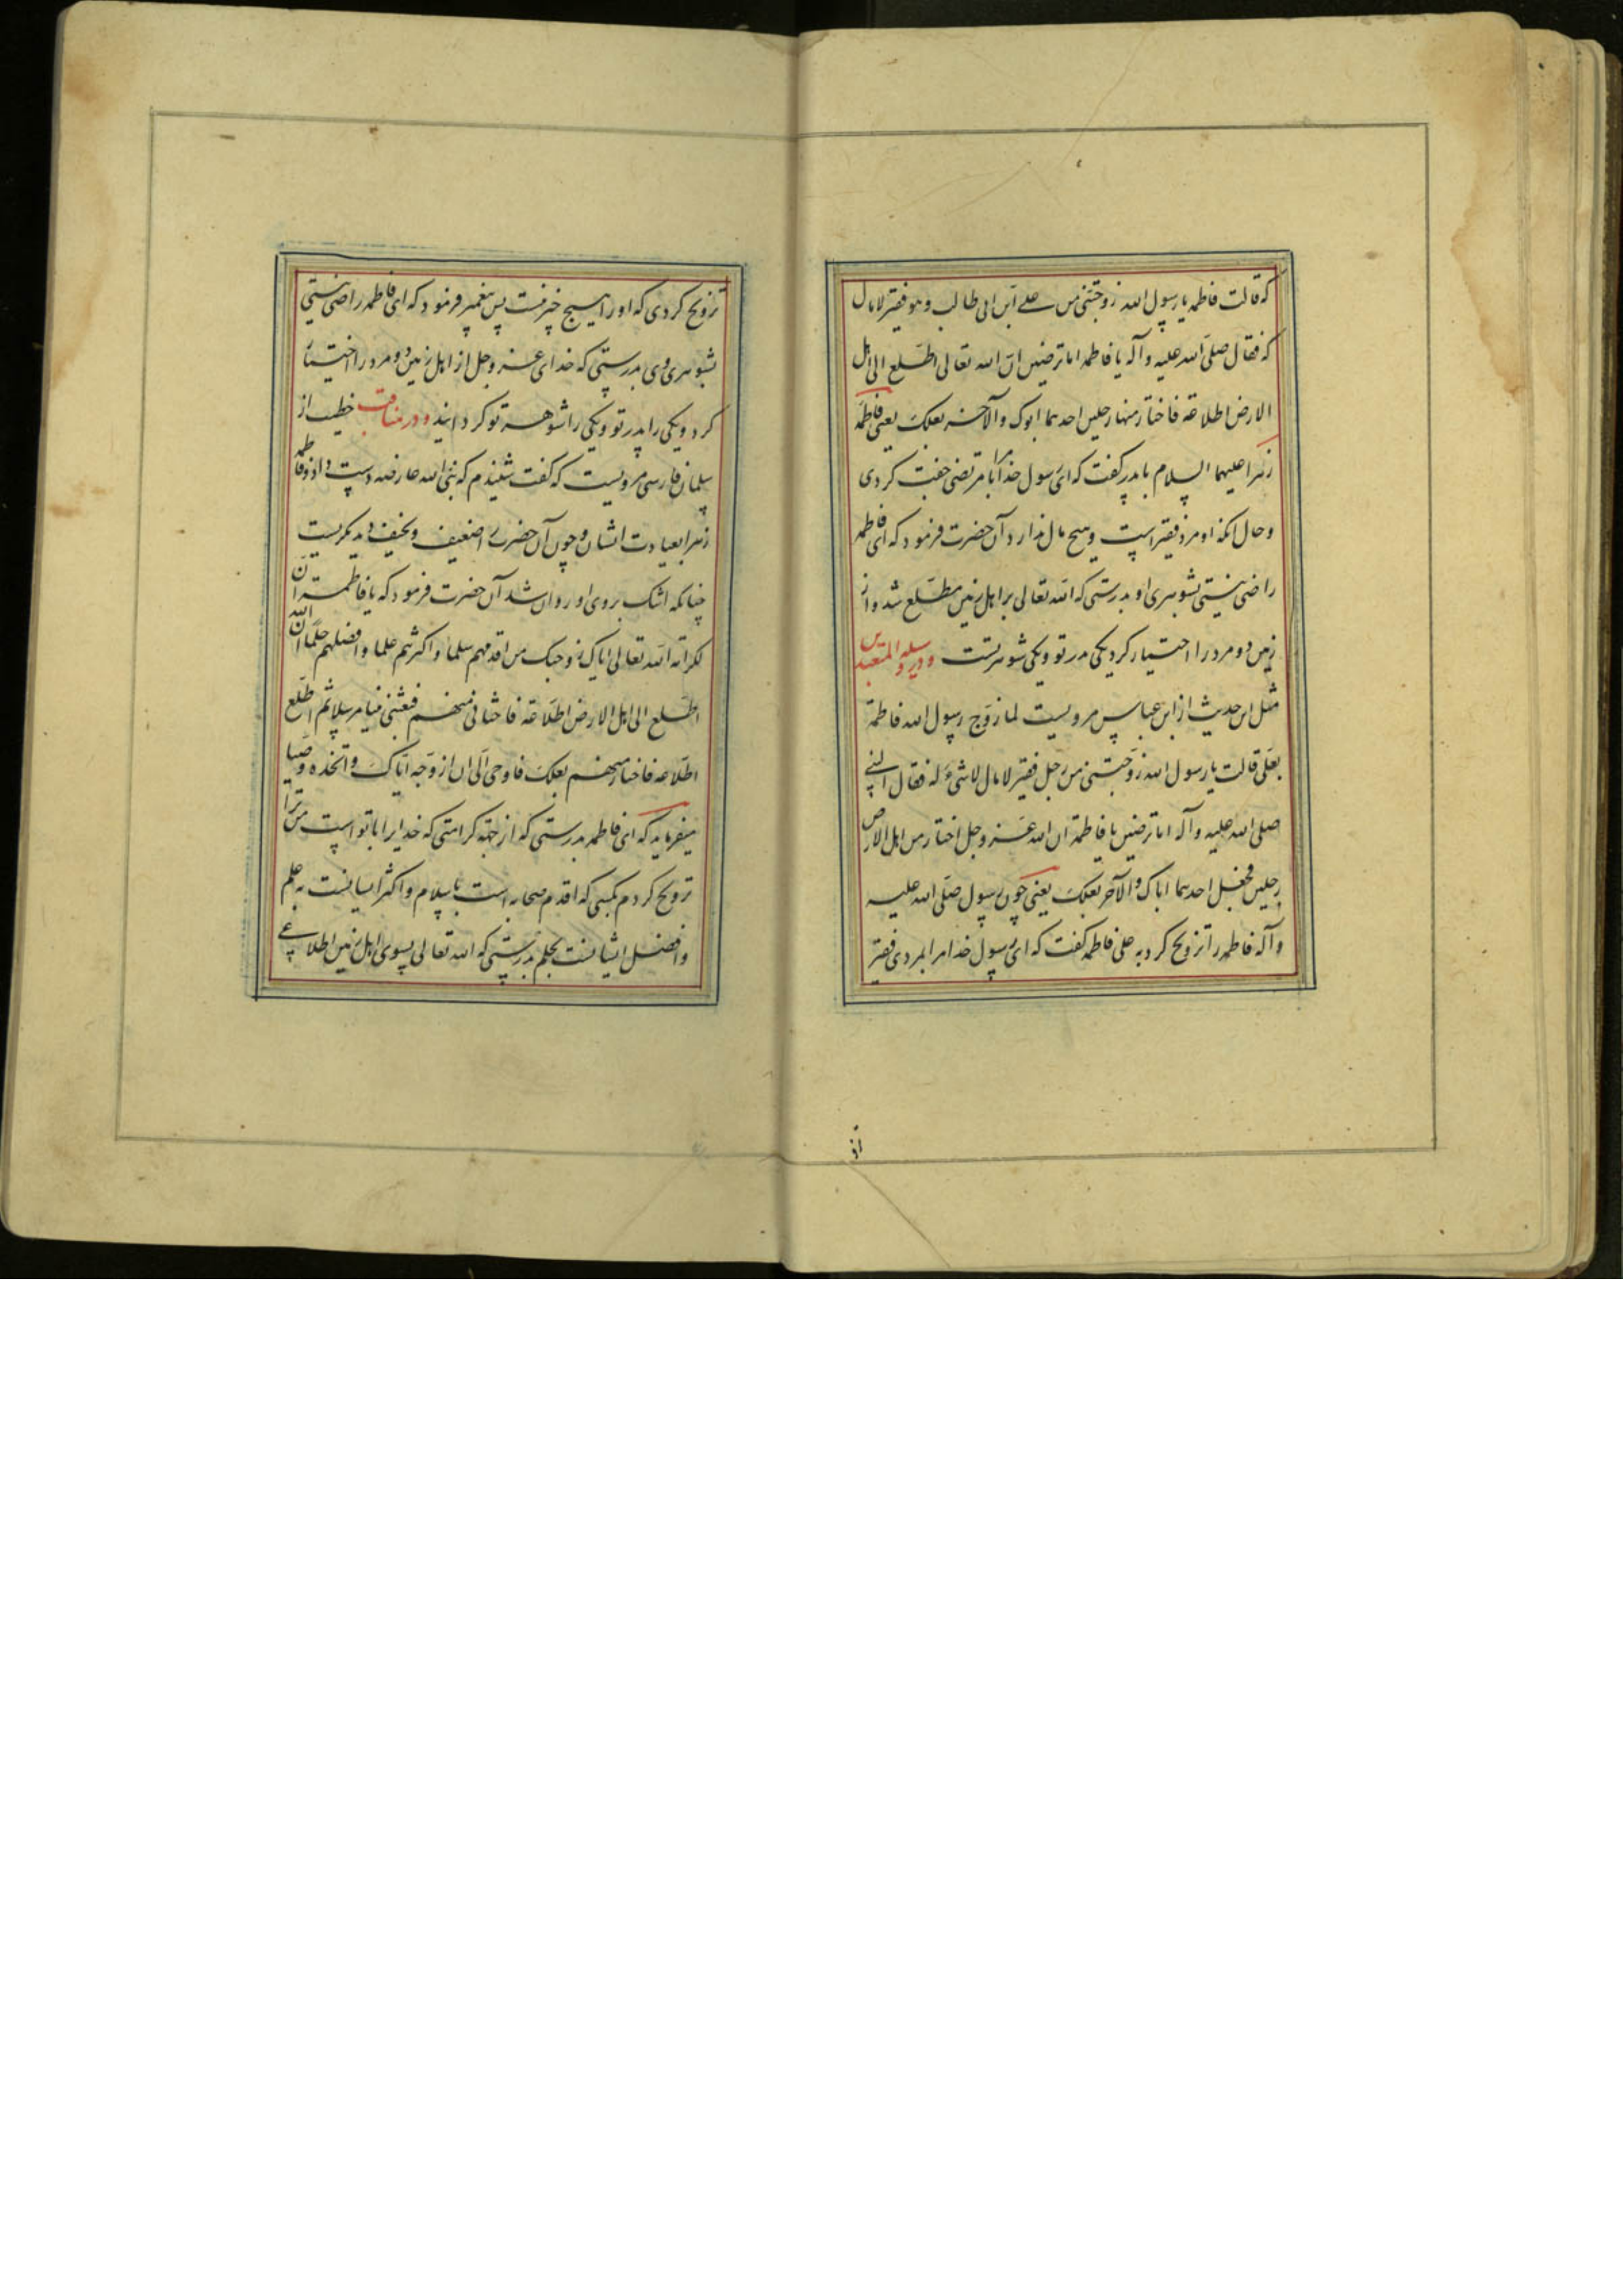 که قالت فاطمه یا رسول الله زوجتنی من علی ابن ابی طالب و هو فقیر لا مال
له فقال صلی الله علیه و آله یا فاطمه اما ترضین ان الله تعالی اطلع الی اهل
الارض اطلاعة فاختار منها رجلین احدهما ابوک و الآخر بعلک یعنی فاطمه
زهرا علیهما السلام با پدر گفت که ای رسول خدا مرا با مرتضی جفت کردی
و حال آنکه او مرد فقیر است و هیچ مال ندارد آن حضرت فرمود که ای فاطمه
راضی نیستی بشوهری او بدرستی که الله تعالی بر اهل زمین مطلع شد و از
زمین دو مرد را اختیار کرد یکی پدر تو و یکی شوهر تست و در وسیلة المتعبدین
مثل این حدیث از ابن عباس مرویست لما زوج رسول الله فاطمة
بعلی قالت یا رسول الله زوجتنی من رجل فقیر لا مال لا شیء له فقال النبی
صلی الله علیه و آله اما ترضین یا فاطمة ان الله عز و جل اختار من اهل الارض
رجلین فجعل احدهما اباک و الآخر بعلک یعنی چون رسول صلی الله علیه
و آله فاطمه را تزویج کرد به علی فاطمه گفت که ای رسول خدا مرا بمردی فقیر
تزویج کردی که او را هیچ چیز نیست پس پیغمبر فرمود که ای فاطمه راضی نیستی
بشوهری وی بدرستی که خدای عز و جل از اهل زمین دو مرد را اختیار
کرد و یکی را پدر تو و یکی را شوهر تو گردانید و در مناقب خطیب از
سلمان فارسی مرویست که گفت شنیدم که نبی الله را عارضه دست داد و فاطمه
زهرا بعیادت ایشان و چون آن حضرت را ضعیف و نحیف دید بگریست
چنانکه اشک بروی او روان شد آن حضرت فرمود که یا فاطمة ان
لکرامة الله تعالی ایاک زوجتک من اقدمهم سلما و اکثرهم علما و افضلهم حلما ان الله
اطلع الی اهل الارض اطلاعة فاختارنی منهم فبعثنی نبیا مرسلا ثم اطلع
اطلاعة فاختار منهم بعلک فاوحی الی ان ازوجه ایاک و اتخذه وصیا
میفرماید که ای فاطمه بدرستی که از جهة کرامتی که خدایرا با تو است من ترا
تزویج کردم بکسی که اقدم صحابه است باسلام و اکثر ایشانست به علم
و افضل ایشانست بحلم بدرستی که الله تعالی بسوی اهل زمین اطلاعی